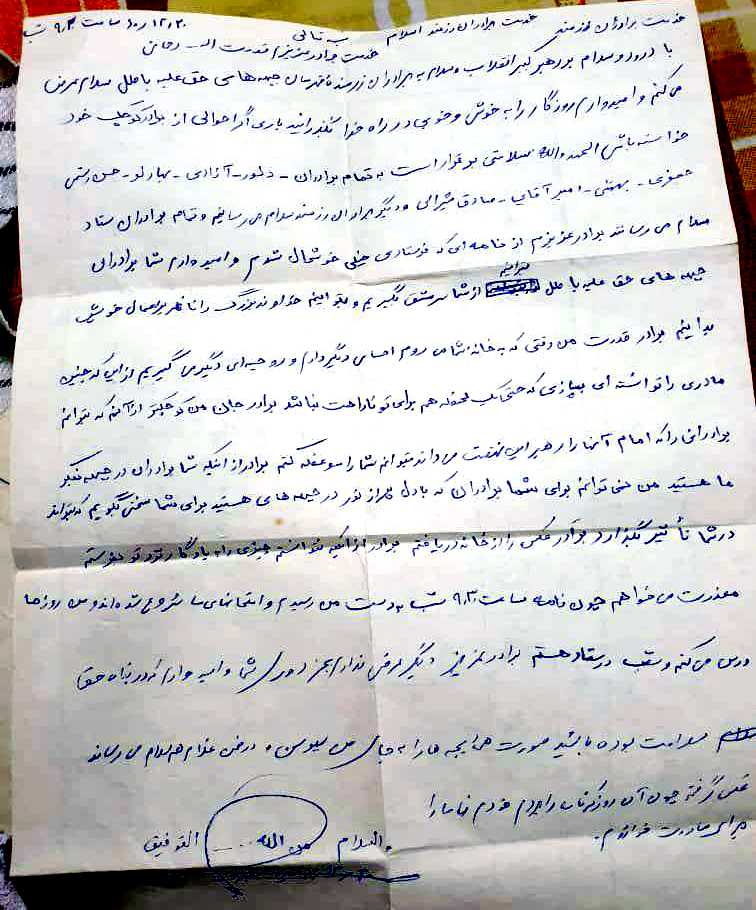 ساعت ۹/۳۰ شب
خدمت برادران رزمنده اسلام
خدمت برادر عزیزم قدرت ا...
با درود و سلام بر رهبر کبیر انقلاب و سلام به برادران رزمنده جبهه های حق علیه باطل سلام عرض
می کنم و امیدوارم روزگار را به خوشی و خوبی در راه خدا بگذرانید باری اگر احوالی از برادر کوچک خود
خواسته باشی الحمدوالله سلامتی برقرار است به تمام برادران - دلاور - آزادی - بهارلو - حسن رستمی
جعفری - بهمنی - امیر آقایی - صادق شیرالی و دیگر برادران رزمنده سلام می رسانم و تمام برادران ستاد
سلام می رسانند برادر عزیزم از نامه ای که فرستادی خیلی خوشحال شدم و امیدوارم شما برادران
جبهه های حق علیه باطل بتوانیم از شما سرمشق بگیریم و بتوانیم خداوند بزرگ را ناظر بر اعمال خویش
بدانیم برادر قدرت من وقتی که به خانه شما می روم احساس دیگر دارم و روحیه ای دیگر می گیریم از این که چنین
مادری را توانسته ای بسازی که حتی یک لحظه هم برای تو ناراحت نباشد برادر جان من کوچکتر از آنم که بتوانم
برادرانی را که امام آنها را رهبر این نهضت می داند بتوانم شما را موعظه کنم برادر از اینکه شما برادران در جبهه
ما هستید من نمی توانم برای شما برادران که با دل در جبهه های هستید برای شما سخن بگویم که بتواند
در شما تأثیر بگذارد برادر عکس را از خانه دریافتم برادر از اینکه نتوانستم چیزی را به یادگار نزد تو بفرستم
معذرت می خواهم چون نامه ساعت ۹/۳۰ شب به دست من رسید و امتحانهای ما شروع شده اند و من روزها
درس می کنم و شب در ستاد هستم برادر عزیز دیگر عرضی ندارم بجز دوری شما و امیدوارم که در پناه حق
سلامت بوده باشید صورت همه بچه ها را به جای من ببوس و در ضمن هم سلام می رساند
عکس گرفته چون آن روز که را بردم خودم نامه را
برای مادرت خواندم.
والسلام من الله ... التوفیق